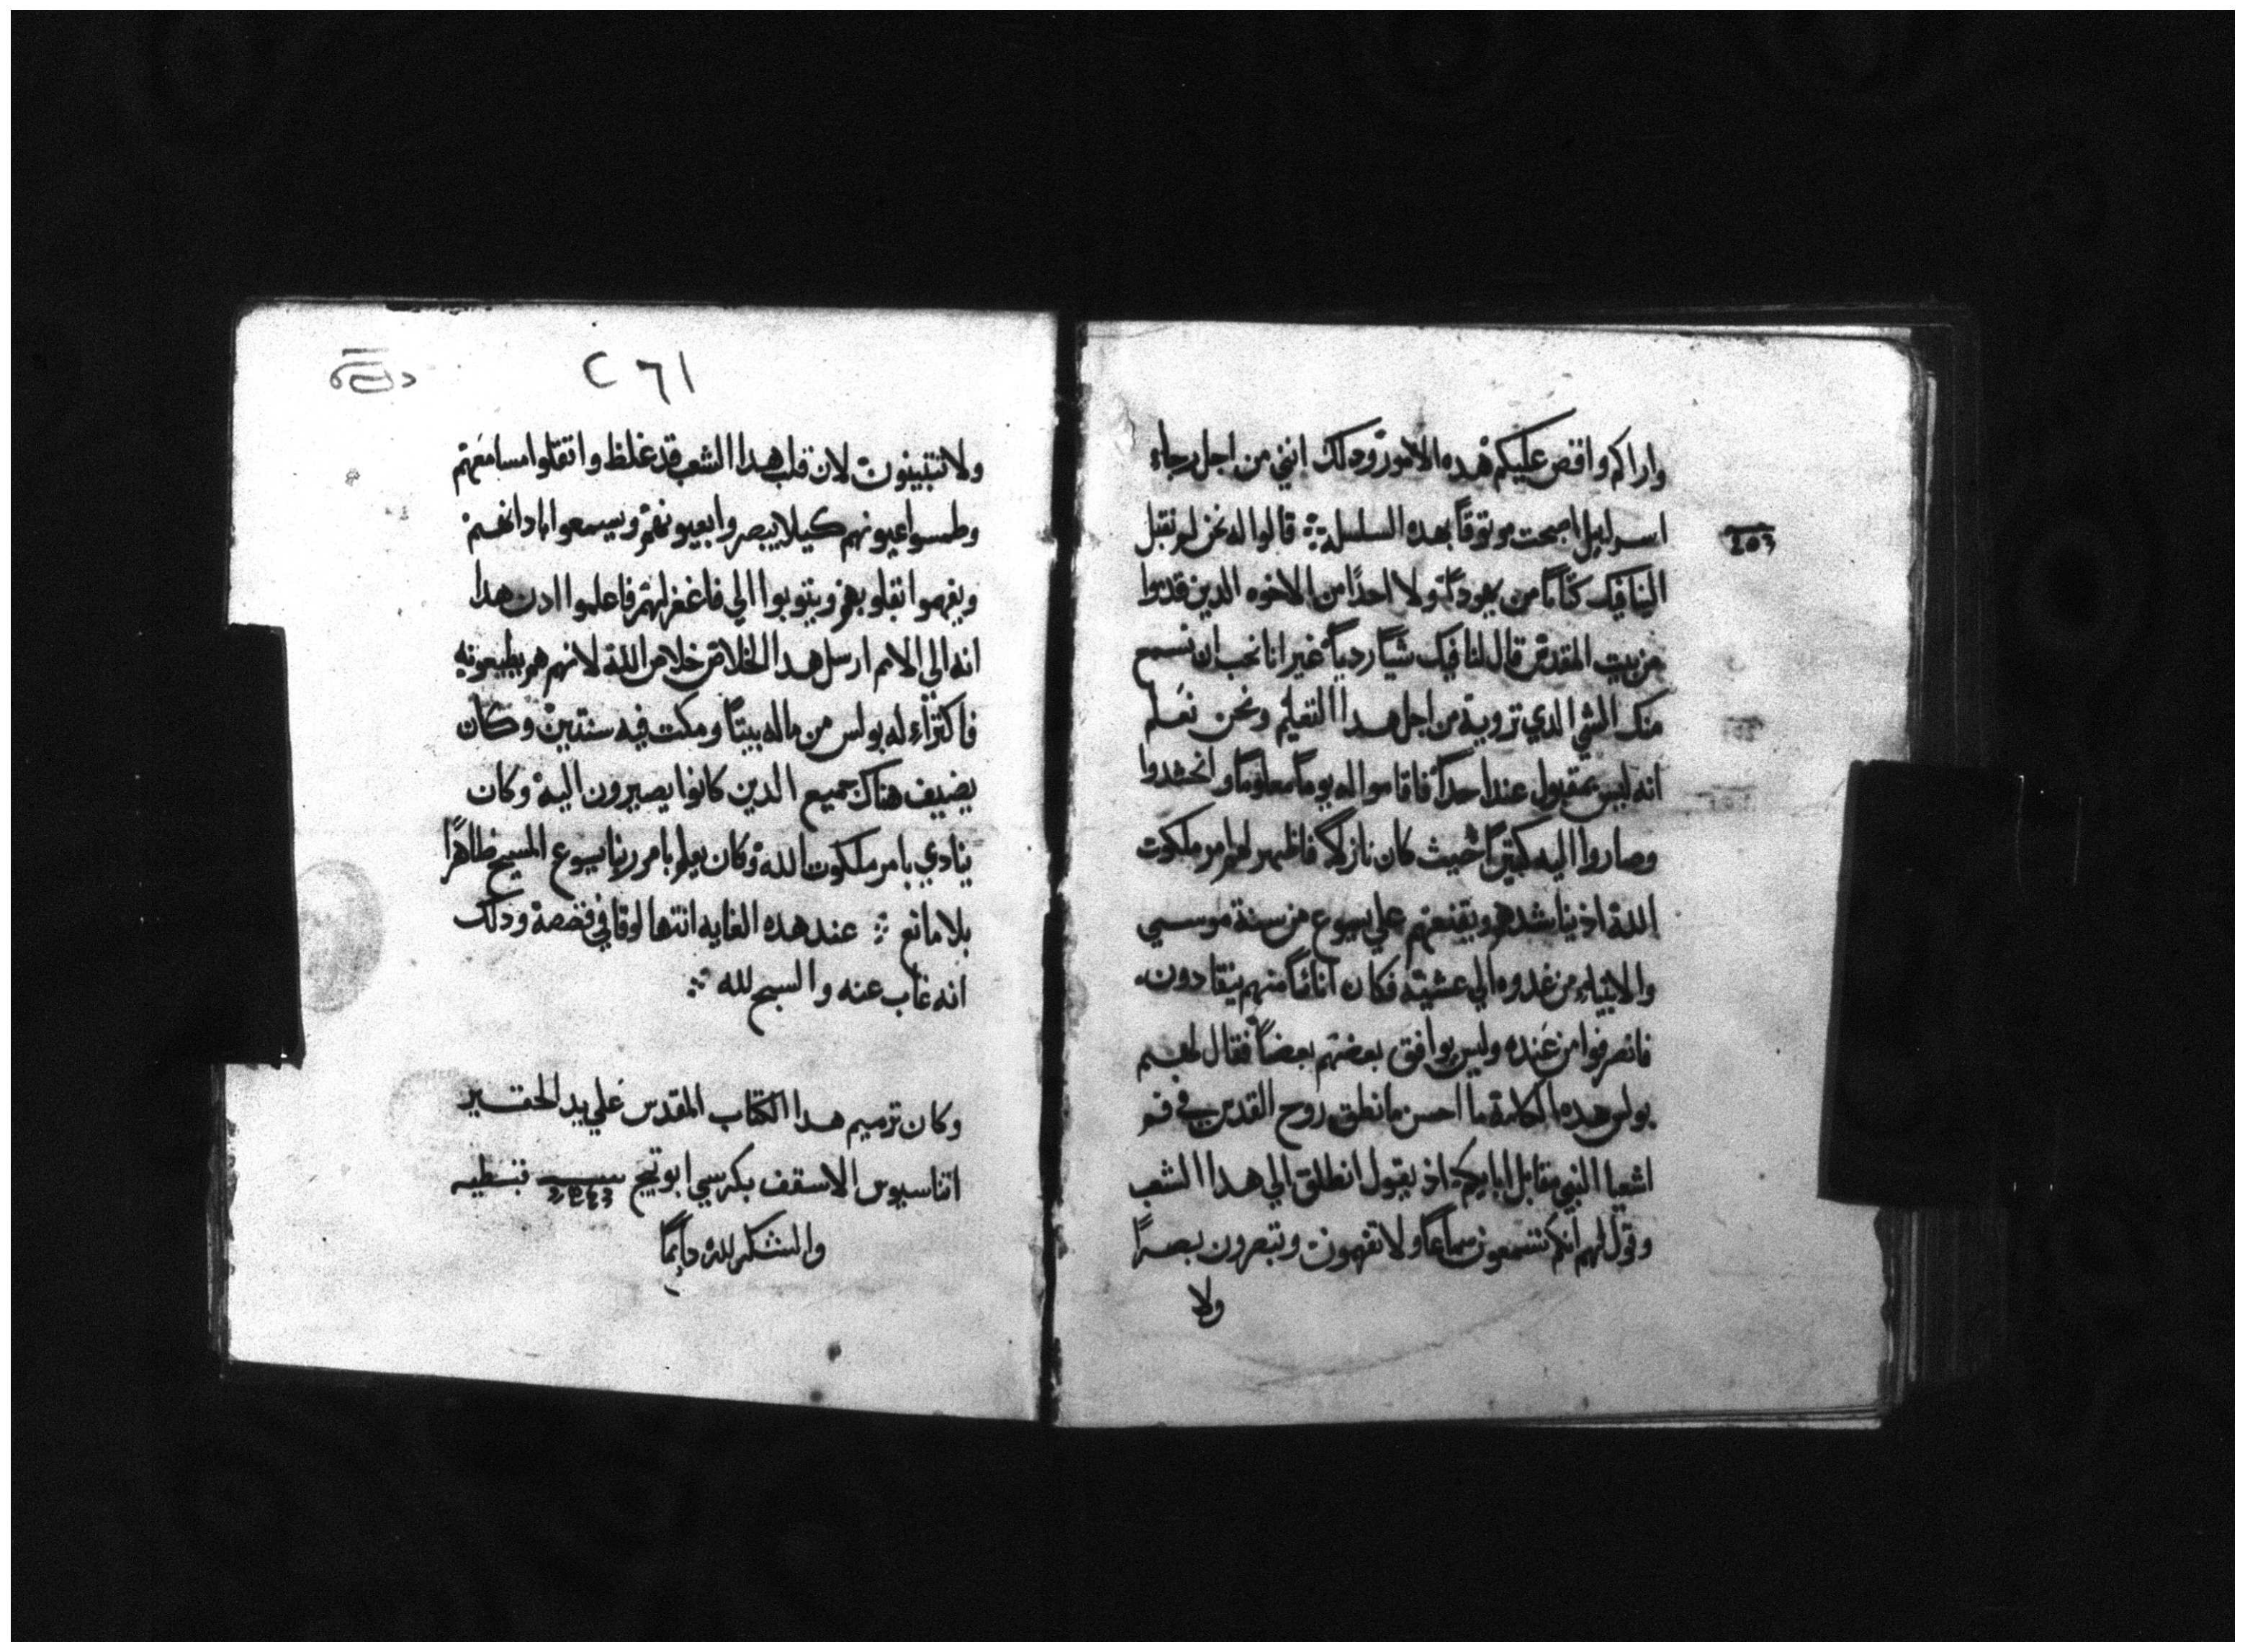 واراكم واقص عليكم هده الامور ودلك انني من اجل رجاء
اسراييل اصبحت موتوقاً بهده السلسله قالوا له نحن لم نقبل
الينا فيك كتاباً من يهودا ولا احداً من الاخوه الدين قدموا
من بيت المقدس قال لنا فيك شياً ردياً غير انا نحب ان نسمع
منك الشي الدي ترويه من اجل هدا التعليم ونحن نعلم
انه ليس بمقبول عند احداً فاقاموا له يوماً معلوماً وانحشدوا
وصاروا اليه كتيراً حيث كان نازلاً فاظهر لهم امر ملكوت
الله اذ يناشدهم ويقنعهم علي يسوع من سنة موسي
والانبياء من غدوه الي عشيه فكان اناساً منهم ينقادون
فانصرفوا من عنده وليس يوافق بعضهم بعضاً فقال لهم
بولس هده الكلمة ما احسن ما نطق روح القدس في فم
اشعيا النبي مقابل ابايكم اذ يقول انطلق الي هدا الشعب
وقول لهم انكم تسمعون سماعاً ولا تفهمون وتبصرون بصراً
ولا
٢٦١
ولا تتبينون لان قلب هدا الشعب قد غلظ واتقلوا مسامعهم
وطمسوا عيونهم كيلا يبصروا بعيونهم ويسمعوا باداانهم
ويفهموا بقلوبهم ويتوبوا الي فاغفر لهم فاعلموا ادن هدا
انه الي الامم ارسل هدا الخلاص خلاص الله لانهم هم يطيعونه
فاكتراء له بولس من ماله بيتاً ومكت فيه سنتين وكان
يضيف هناك جميع الدين كانوا يصيرون اليه وكان
ينادي بامر ملكوت الله وكان يعلم بامر ربنا يسوع المسيح ظاهراً
بلا مانع عند هده الغايه انتها لوقا في قصصه ودلك
انه غاب عنه والسبح لله
وكان ترميم هدا الكتاب المقدس علي يد الحقير
اتناسيوس الاسقف بكرسي ابوتيج قبطيه
والشكر لله دايماً